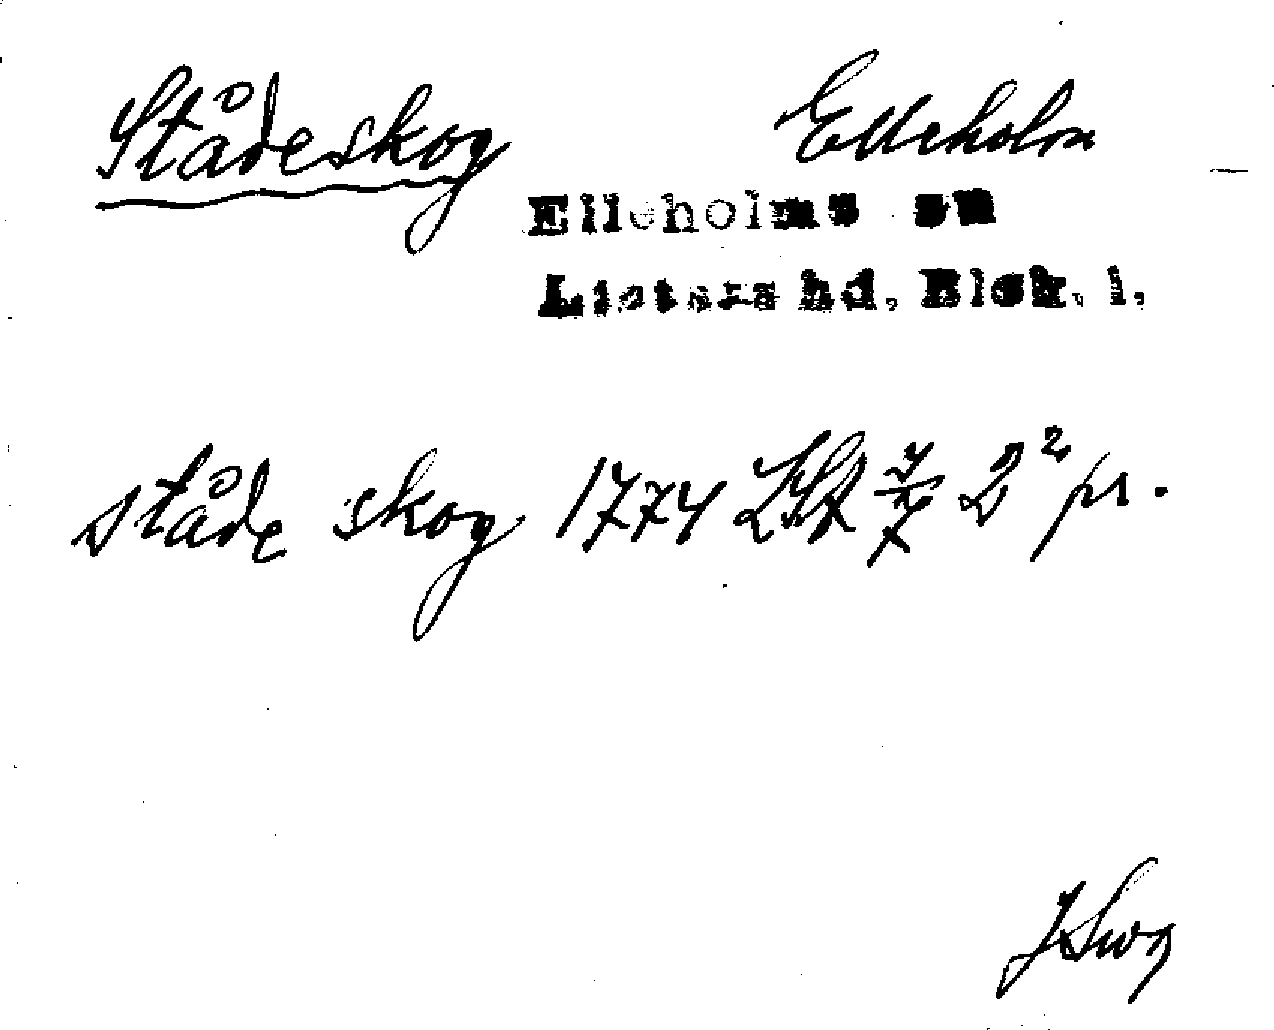 Städeskog Elleholm
Elleholms sn
Listers hd. Blek. l.
ståde skog 1774 2² pr.